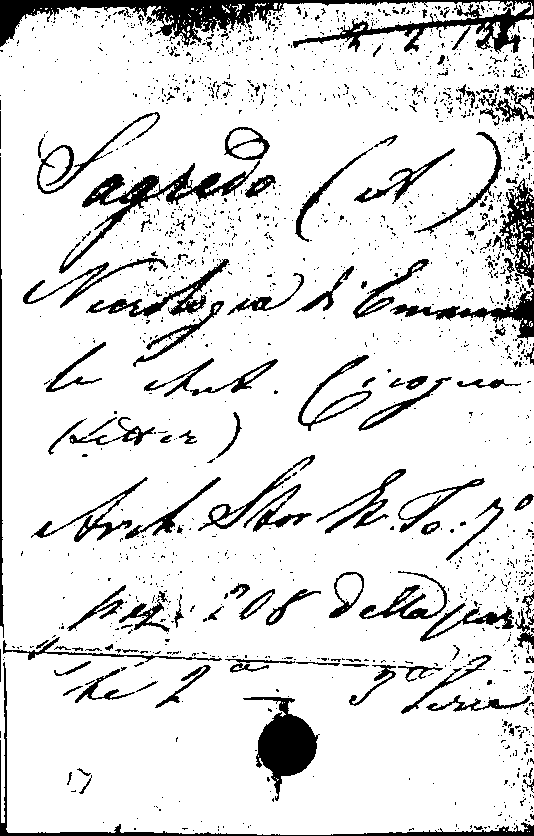 2, 2, 134
Sagredo (A)
Necrologia di Emanue
le Ant. Cicogna
(Letter)
Arch. Stor It. To. 7º
pag. 208 della par
te 2ª — 3ª Serie
17